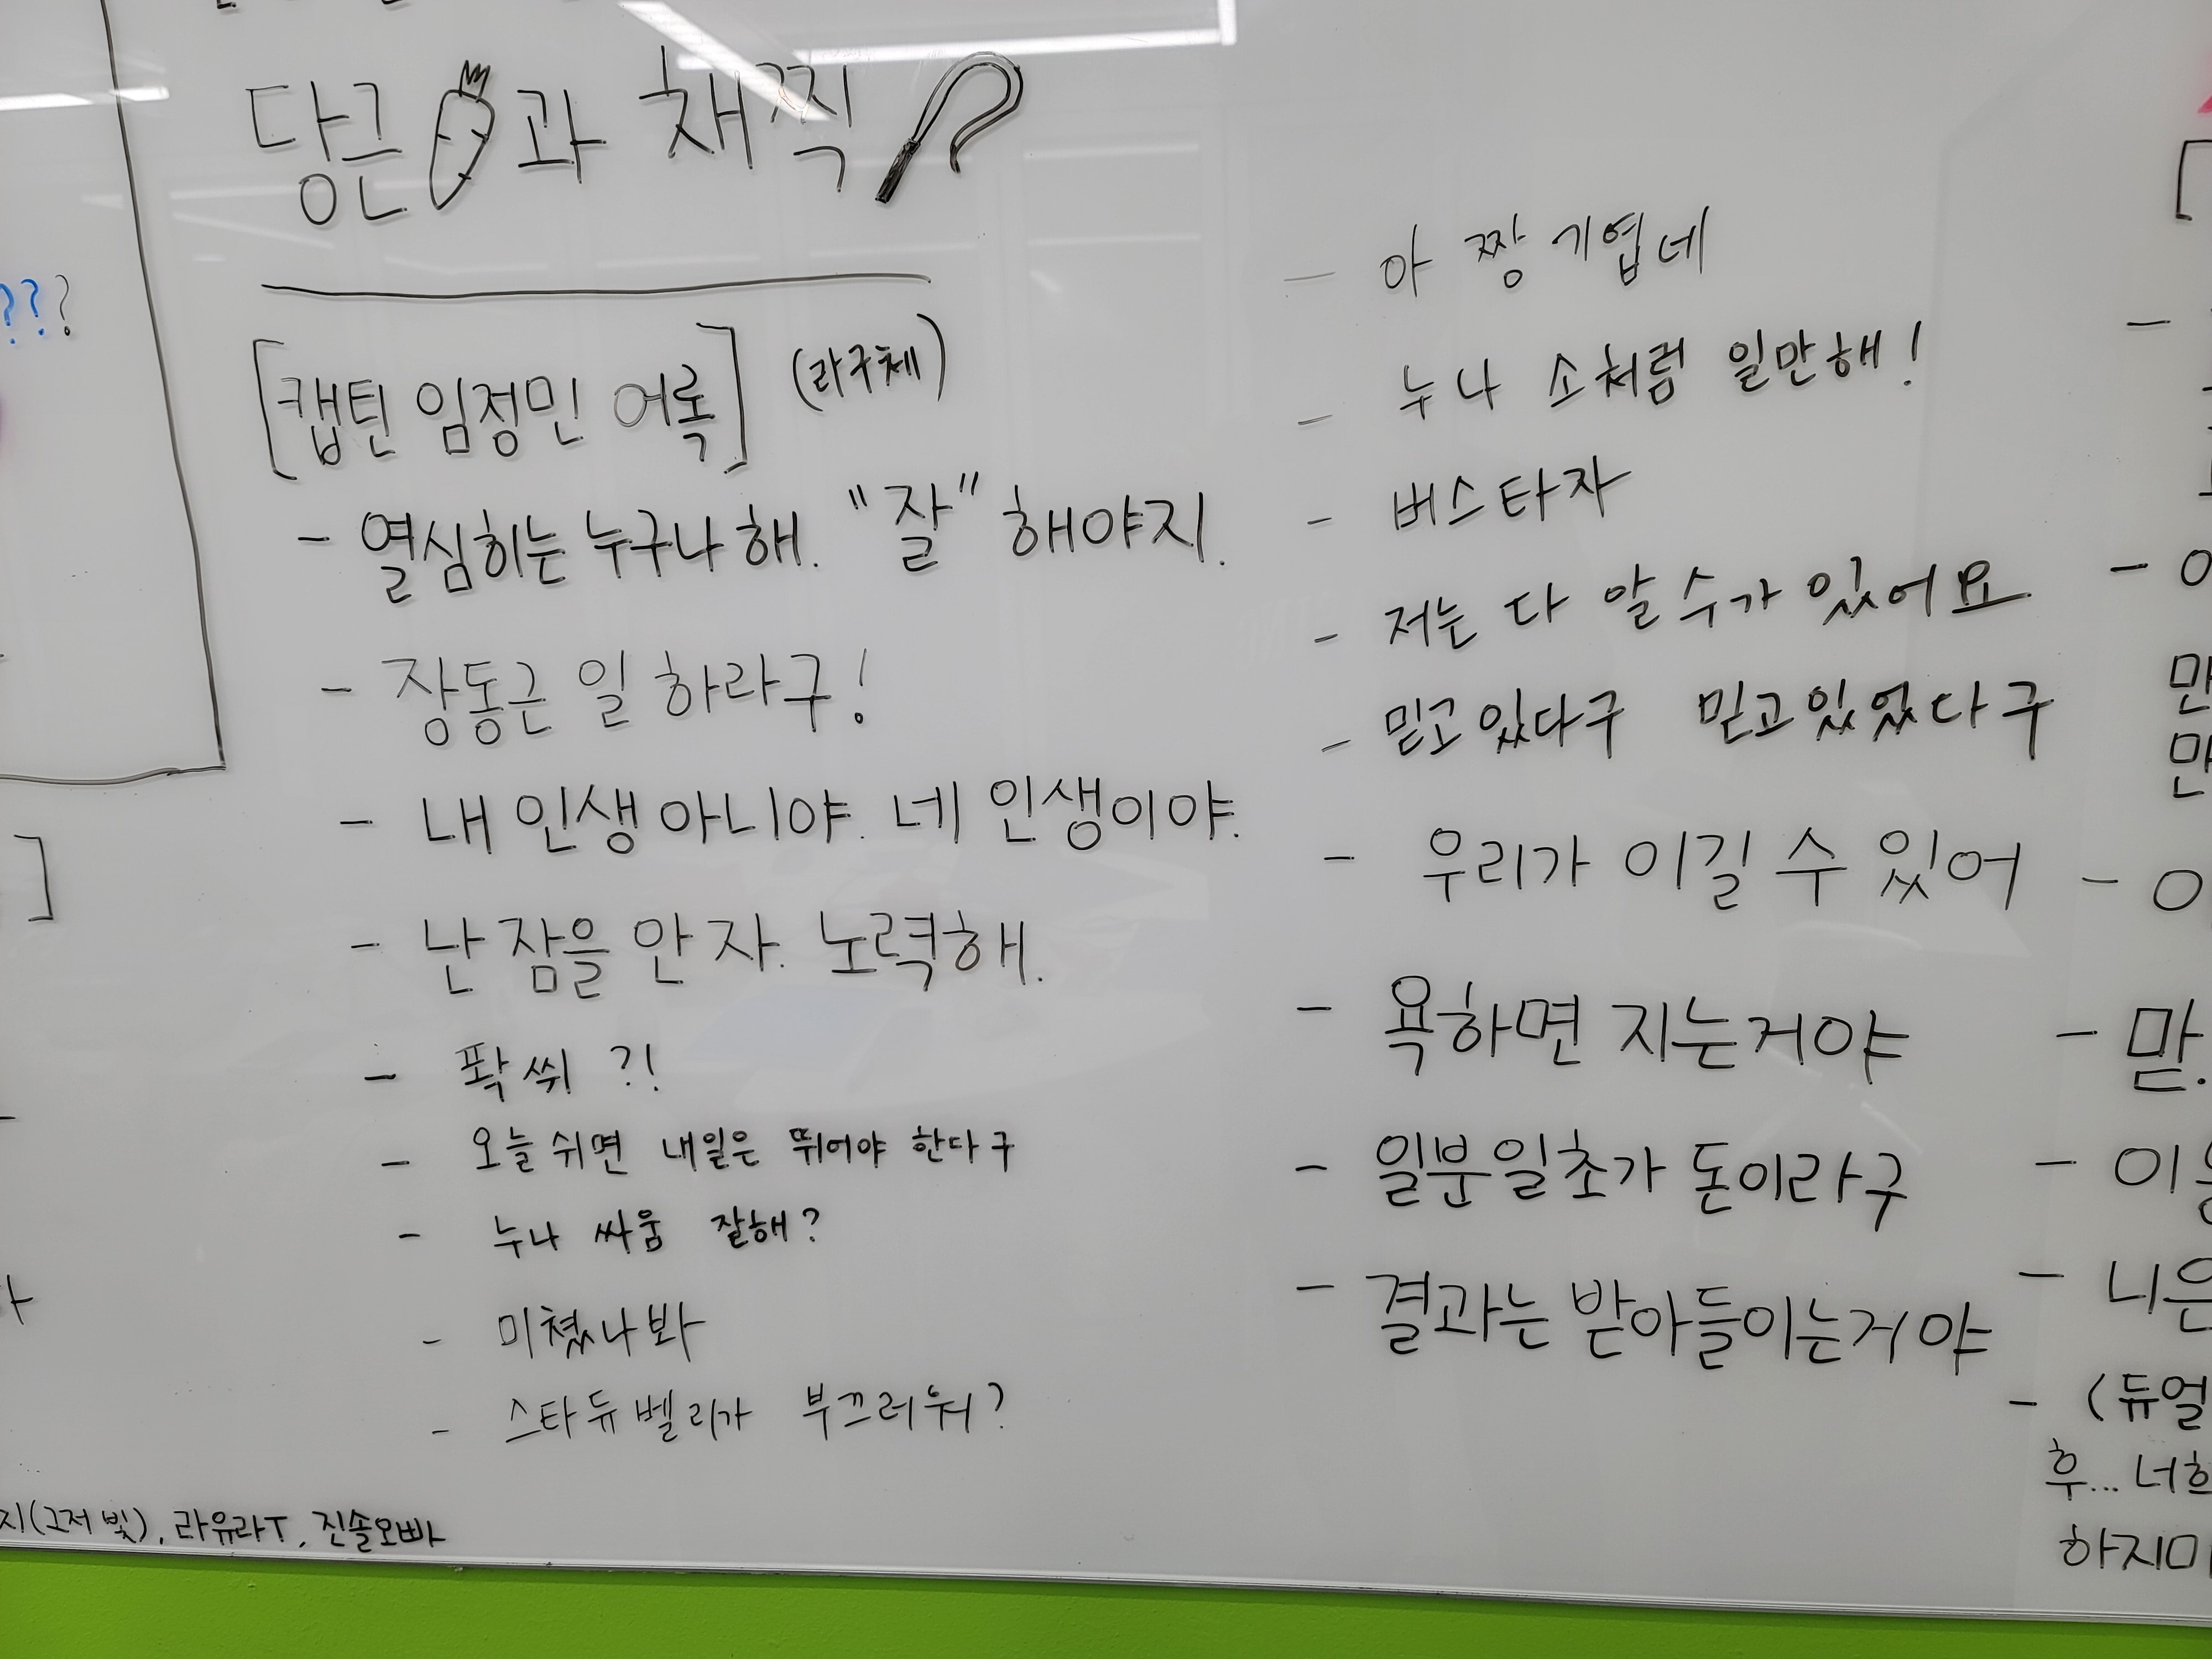 당근과 채찍
[캡틴 임정민 어록] (라구체)
- 열심히는 누구나 해. "잘" 해야지.
- 장동근 일 하라구!
- 내 인생 아니야. 네 인생이야.
- 난 잠을 안 자. 노력해.
- 퐉 쒸 ?!
- 오늘 쉬면 내일은 뛰어야 한다구
- 누나 싸움 잘해?
- 미쳤나봐
- 스타듀벨리가 부끄러워?
지(그저 빛), 라유라T, 진솔오빠
- 아 짱 기엽네
- 누나 소처럼 일만해!
- 버스타자
- 저는 다 알 수가 있어요
- 믿고있다구 믿고있었다구
- 우리가 이길 수 있어
- 욕하면 지는거야
- 일분일초가 돈이라구
- 결과는 받아들이는거야
???
]
- (듀얼
후... 너희
하지마